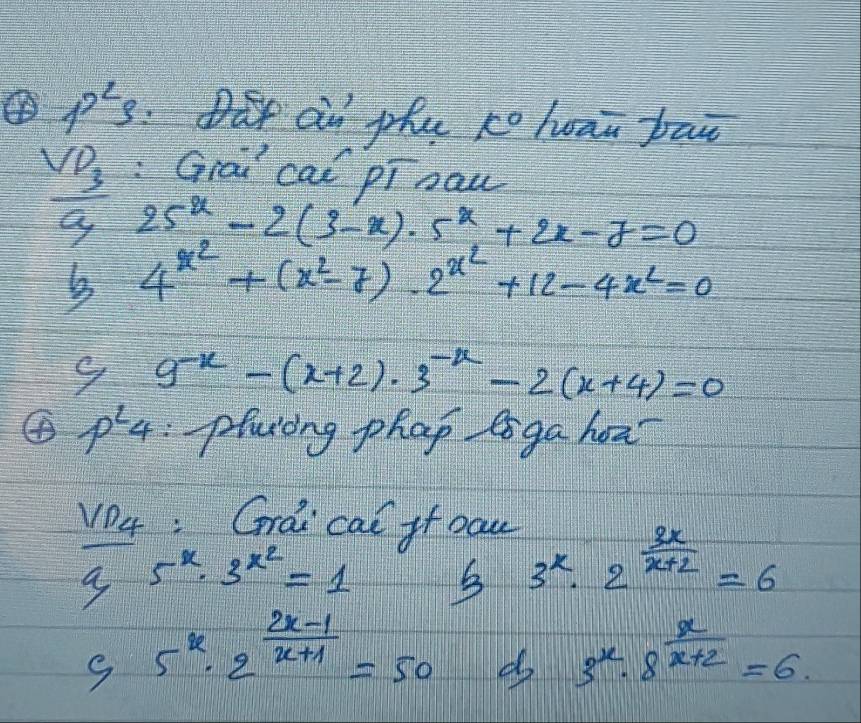 ⊕ p²3: Đặt ẩn phụ ko hoàn toàn
VD3 : Giải các pT sau
a, 25^x - 2(3-x).5^x + 2x - 7 = 0
b, 4^{x^2} + (x^2 - 7).2^{x^2} + 12 - 4x^2 = 0
c, 9^{-x} - (x+2).3^{-x} - 2(x+4) = 0
⊕ p²4: phương pháp lôga hoá
VD4 : Giải các pt sau
a, 5^x.3^{x^2} = 1 b, 3^x.2^{\frac{3x}{x+2}} = 6
c, 5^x.2^{\frac{2x-1}{x+1}} = 50 d, 3^x.8^{\frac{x}{x+2}} = 6.